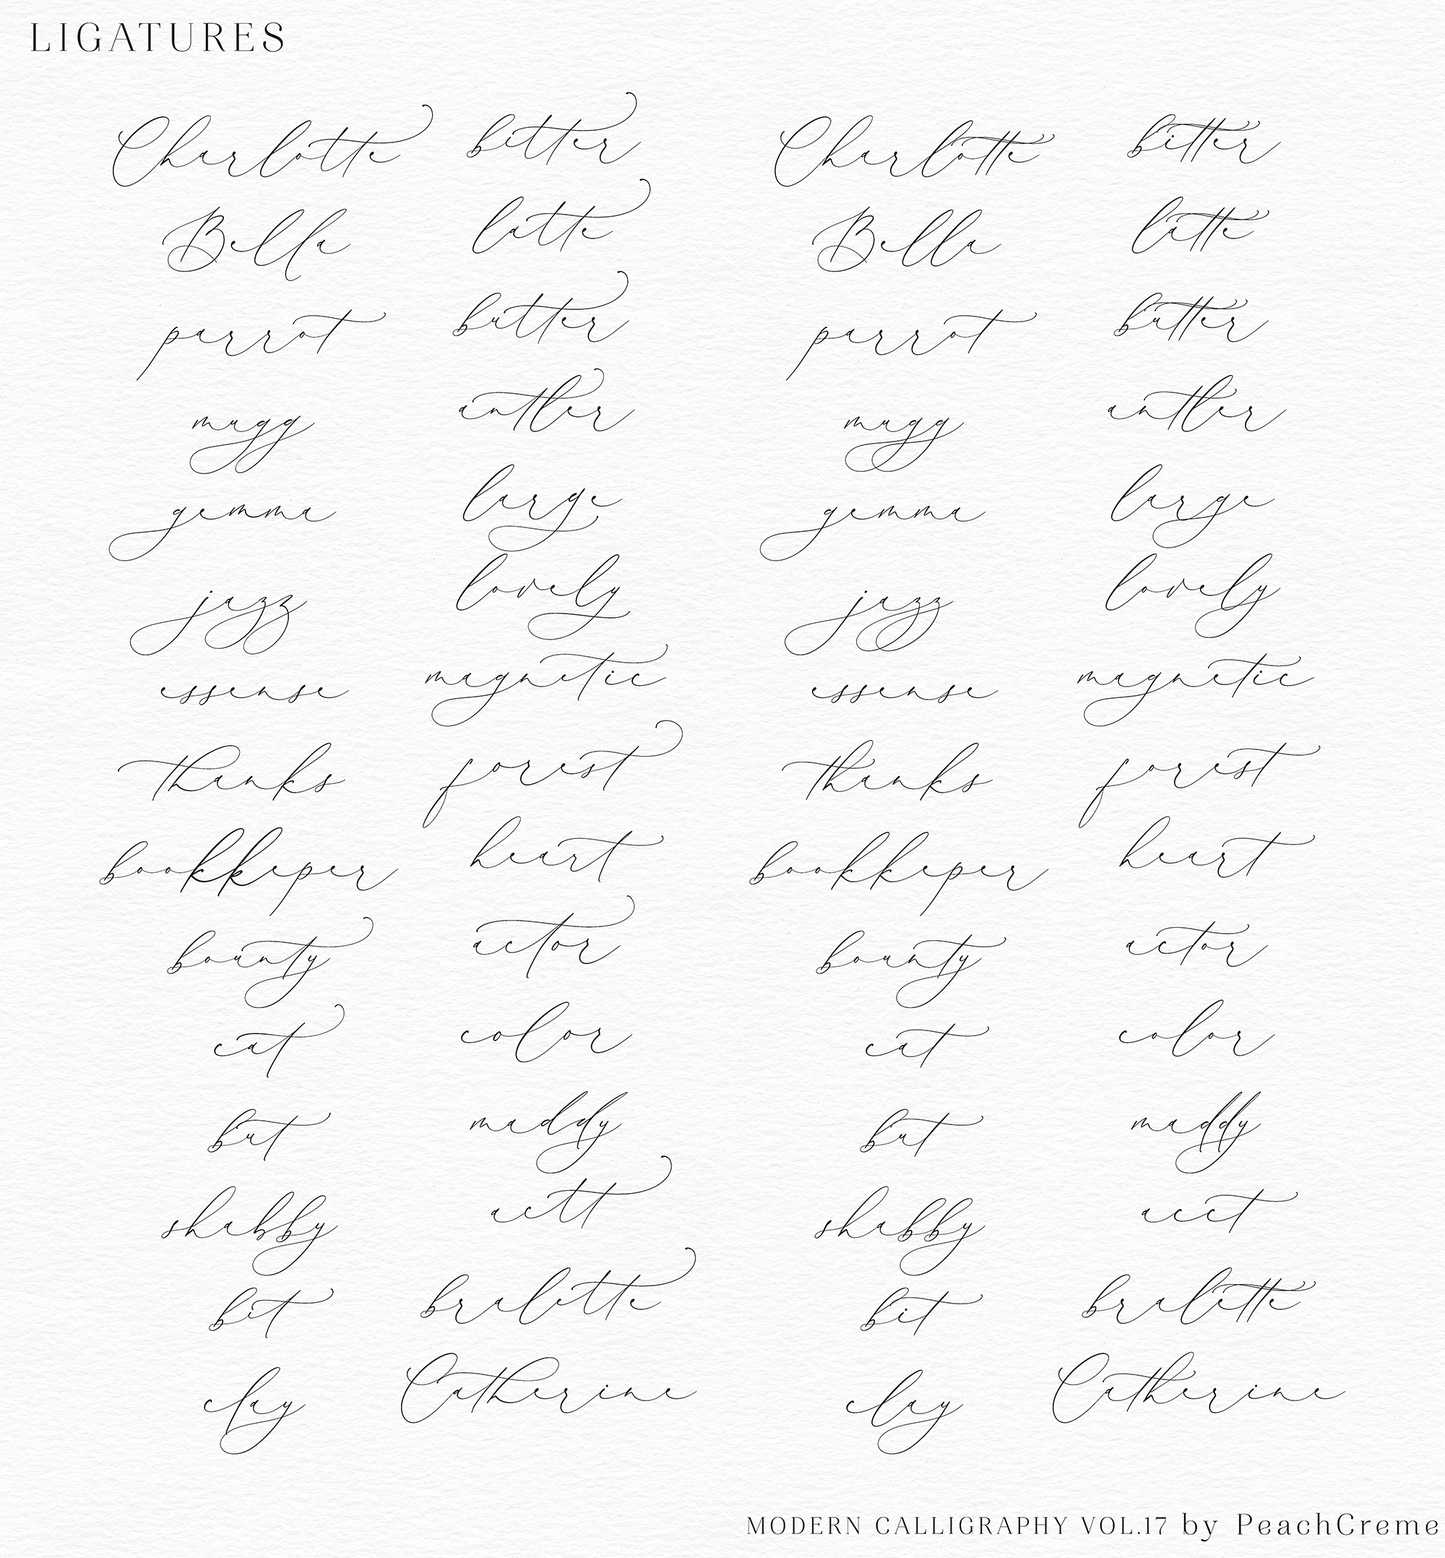 LIGATURES
Charlotte bitter Charlotte bitter
Bella latte Bella latte
parrot butter parrot butter
mugg antler mugg antler
gemma large gemma large
jazz lovely jazz lovely
essense magnetic essense magnetic
thanks forest thanks forest
bookkeper heart bookkeper heart
bounty actor bounty actor
cat color cat color
but maddy but maddy
shabby shabby
bit bralette bit bralette
clay Catherine clay Catherine
MODERN CALLIGRAPHY VOL.17 by PeachCreme